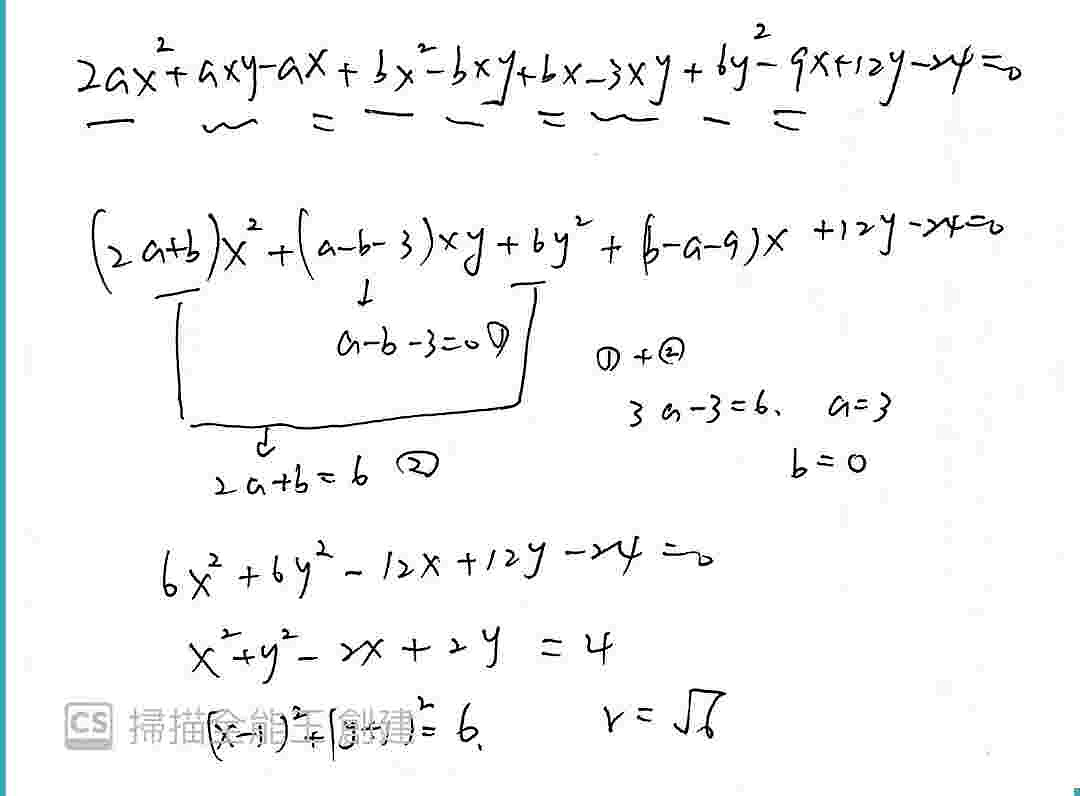 2ax²+axy-ax+bx²-bxy+bx-3xy+6y²-9x+12y-24=0
(2a+b)x²+(a-b-3)xy+6y²+(b-a-9)x+12y-24=0
↓
a-b-3=0 ①
① + ②
3a-3=6, a=3
b=0
2a+b=6 ②
6x²+6y²-12x+12y-24=0
x²+y²-2x+2y=4
(x-1)²+(y+1)²=6, r=√6
CS 掃描全能王 創建